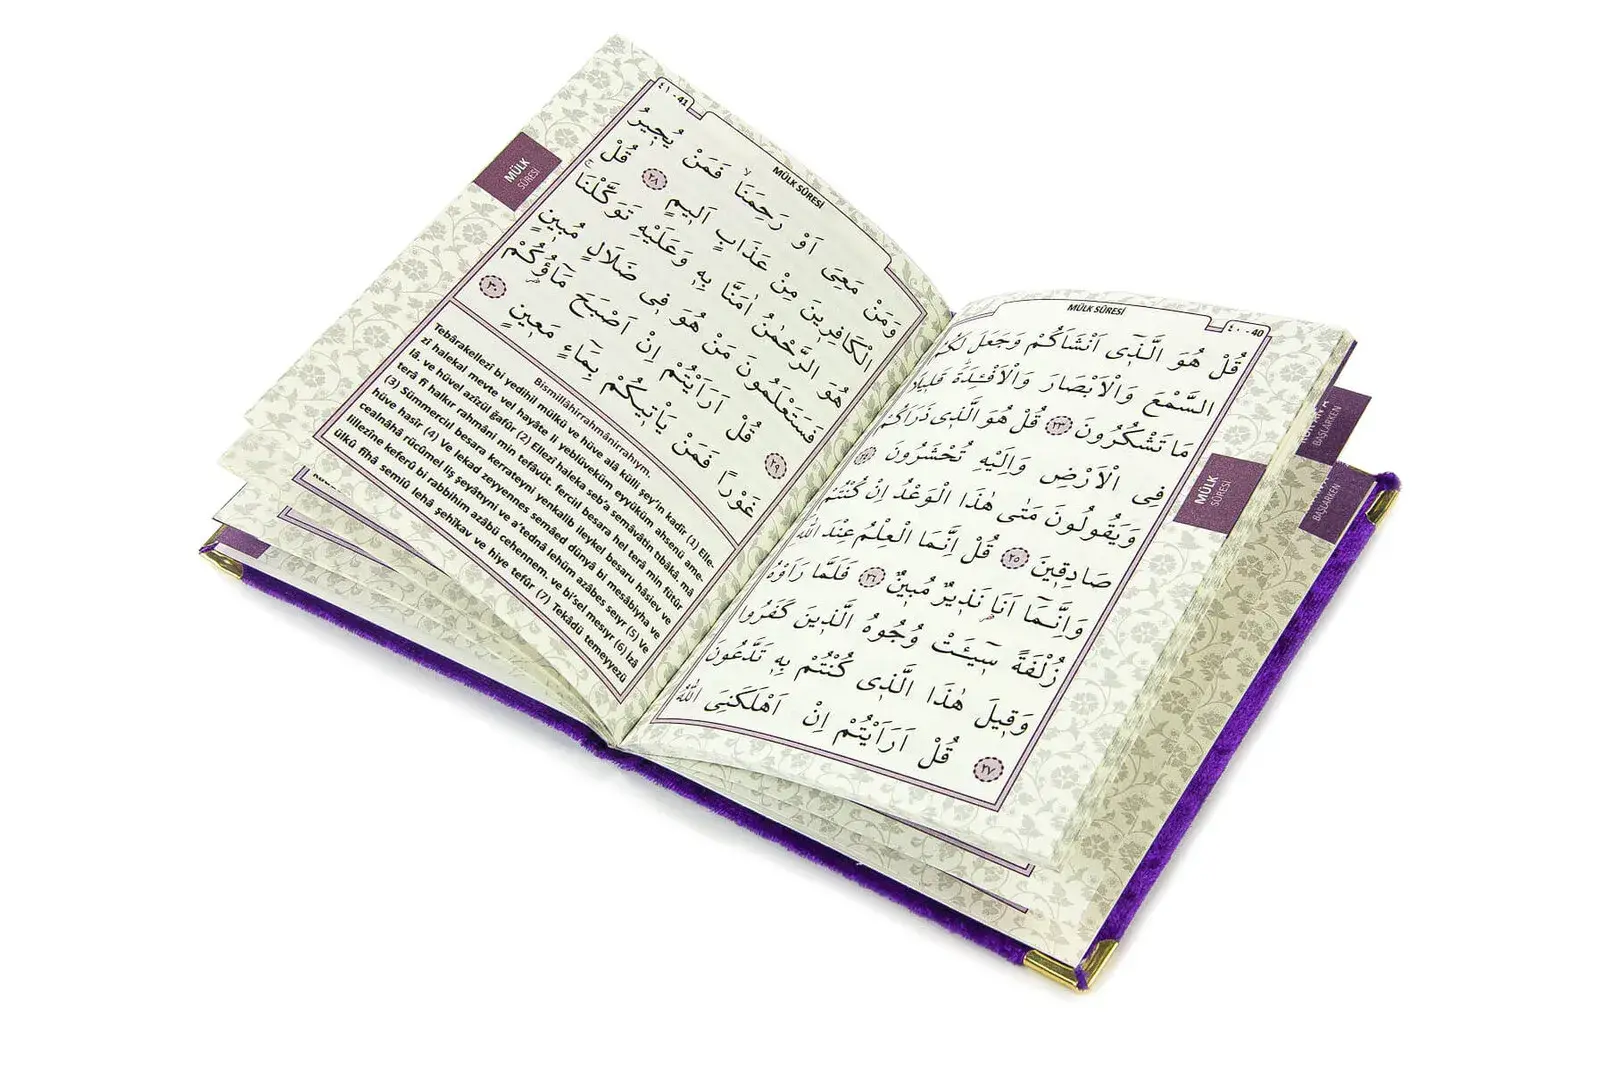 MÜLK SÛRESİ
٤٠ - 40
قُلْ هُوَ الَّذ۪ٓي اَنْشَاَكُمْ وَجَعَلَ لَكُمُ
السَّمْعَ وَالْاَبْصَارَ وَالْاَفْـِٔدَةَۜ قَل۪يلًا
مَا تَشْكُرُونَ ﴿٢٣﴾ قُلْ هُوَ الَّذ۪ي ذَرَاَكُمْ
فِي الْاَرْضِ وَاِلَيْهِ تُحْشَرُونَ ﴿٢٤﴾
وَيَقُولُونَ مَتٰى هٰذَا الْوَعْدُ اِنْ كُنْتُمْ
صَادِق۪ينَ ﴿٢٥﴾ قُلْ اِنَّمَا الْعِلْمُ عِنْدَ اللّٰهِ
وَاِنَّمَٓا اَنَا۬ نَذ۪يرٌ مُب۪ينٌ ﴿٢٦﴾ فَلَمَّا رَاَوْهُ
زُلْفَةً س۪ٓيـَٔتْ وُجُوهُ الَّذ۪ينَ كَفَرُوا
وَق۪يلَ هٰذَا الَّذ۪ي كُنْتُمْ بِه۪ تَدَّعُونَ
﴿٢٧﴾ قُلْ اَرَاَيْتُمْ اِنْ اَهْلَكَنِيَ اللّٰهُ
MÜLK
SÛRESİ
BAŞLARKEN
BAŞLARKEN
٤١ - 41
MÜLK SÛRESİ
وَمَنْ مَعِيَ اَوْ رَحِمَنَاۙ فَمَنْ يُج۪يرُ
الْكَافِر۪ينَ مِنْ عَذَابٍ اَل۪يمٍ ﴿٢٨﴾ قُلْ
هُوَ الرَّحْمٰنُ اٰمَنَّا بِه۪ وَعَلَيْهِ تَوَكَّلْنَاۚ
فَسَتَعْلَمُونَ مَنْ هُوَ ف۪ي ضَلَالٍ مُب۪ينٍ
﴿٢٩﴾ قُلْ اَرَاَيْتُمْ اِنْ اَصْبَحَ مَٓاؤُ۬كُمْ
غَوْرًا فَمَنْ يَأْت۪يكُمْ بِمَٓاءٍ مَع۪ينٍ ﴿٣٠﴾
MÜLK
SÛRESİ
Bismillâhirrahmânirrahıym.
Tebârakellezî bi yedihil mülkü ve hüve alâ külli şey'in kadîr (1) Elle-
zî halekal mevte vel hayâte li yeblüveküm eyyüküm ahsenü ame-
lâ. ve hüvel azîzül ğafûr (2) Ellezî haleka seb'a semâvâtin tıbâkâ, mâ
terâ fî halkır rahmâni min tefâvüt. ferciıl besara hel terâ min fütûr
(3) Sümmerciıl besara kerrateyni yenkalib ileykel besaru hâsiev ve
hüve hasîr (4) Ve lekad zeyyennes semâed dünyâ bi mesâbiyha ve
cealnâhâ rücûmel liş şeyâtıyni ve a'tednâ lehüm azâbes seıyr (5) Ve
lillezîne keferû bi rabbihim azâbü cehennem. ve bi'sel mesıyr (6) İzâ
ülkû fîhâ semiû lehâ şehîkav ve hiye tefûr (7) Tekâdü temeyyezü